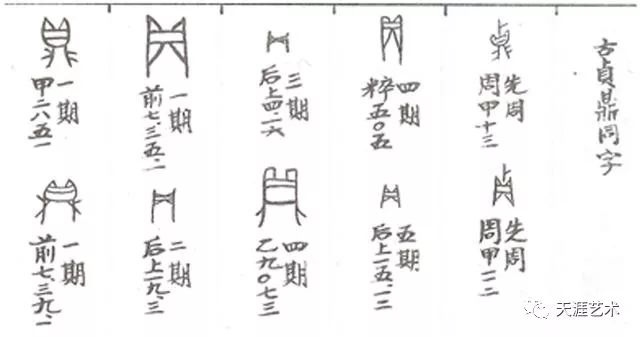 一期
甲二六五一
一期
前七.三九.一
一期
前七.三五.一
二期
后上一九.三
三期
后上四.一六
四期
乙九〇七三
四期
粹五〇五
五期
后上一五.一二
先周
周甲十三
先周
周甲一二
古貞鼎同字
天涯艺术